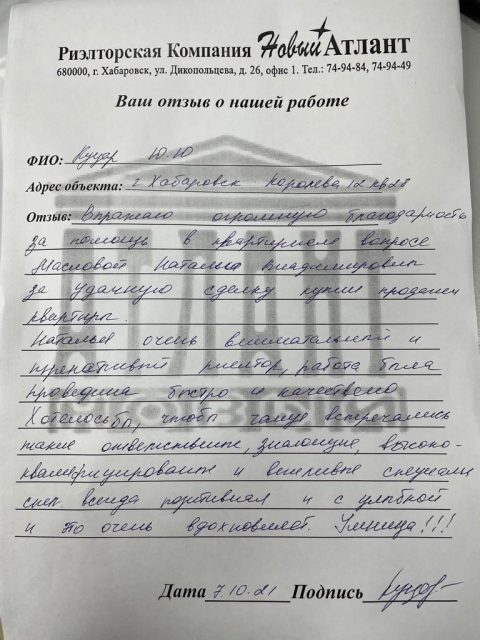 Риэлторская Компания Новый Атлант
680000, г. Хабаровск, ул. Дикопольцева, д. 26, офис 1. Тел.: 74-94-84, 74-94-49
Ваш отзыв о нашей работе
ФИО: Ю.Ю
Адрес объекта: г Хабаровск Королева 12 кв 28
Отзыв: Выражаю огромную благодарность
за помощь в квартирном вопросе
Масловой Наталье Владимировне
за удачную сделку купли продажи
квартиры.
Наталья очень внимательный и
риелтор, работа была
проведина быстро и качествено
Хотелось бы, чтобы чаще встречались
такие ответственные, знающие, высоко-
квалифицированые и вежливые специали
сты. всегда позитивная и с улыбкой
и то очень вдохновляет. Умница!!!
Дата 7.10.21 Подпись
АТЛАНТ